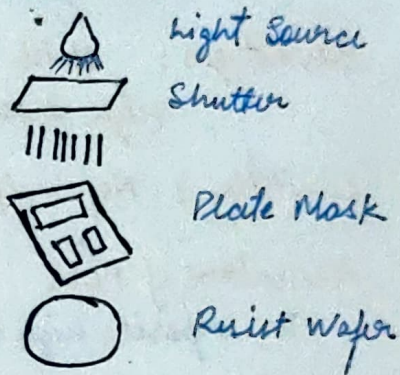 Light Source
Shutter
Plate Mask
Resist Wafer